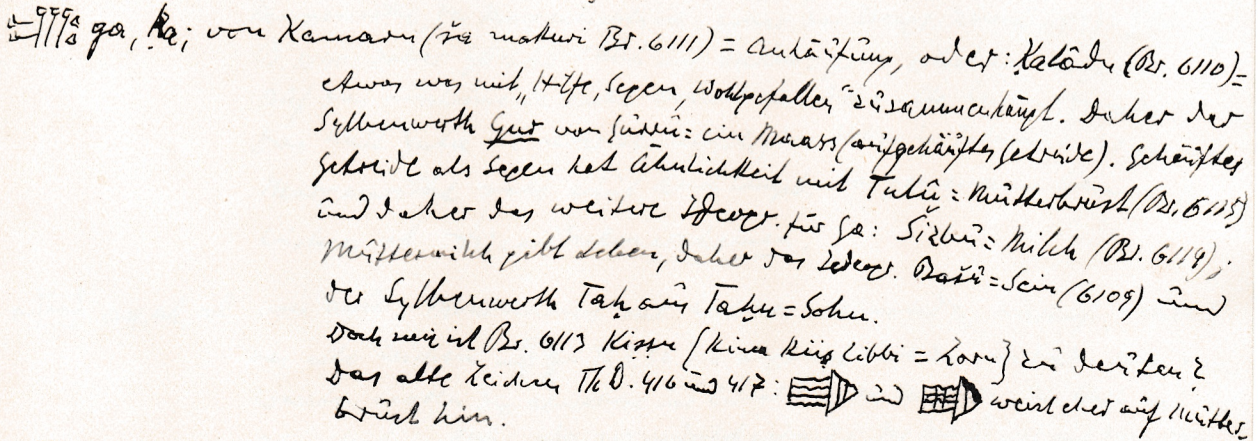 ga, ḳa; von Kamaru (ša makuri Br. 6111) = Anhäufung, oder: Ḳalādu (Br. 6110) =
etwas was mit „Hilfe, Segen, Wohlgefallen" zusammenhängt. Daher der
Sylbenwerth Gur von Gurru = ein Maass (aufgehäuftes Getreide). Gehäuftes
Getreide als Segen hat Ähnlichkeit mit Tulū = Mutterbrust (Br. 6115)
und daher das weitere Ideogr. für Ga: Šizbu = Milch (Br. 6119);
Muttermilch gibt Leben, daher das Ideogr. Bašū = Sein (6109) und
der Sylbenwerth Taḫ aus Taḫu = Sohn.
Doch wie ist Br. 6113 Kissu {Kima Kiiṣ Libbi = Zorn} zu deuten?
Das alte Zeichen Th. D. 416 und 417: und weist eher auf Mutter-
brust hin.